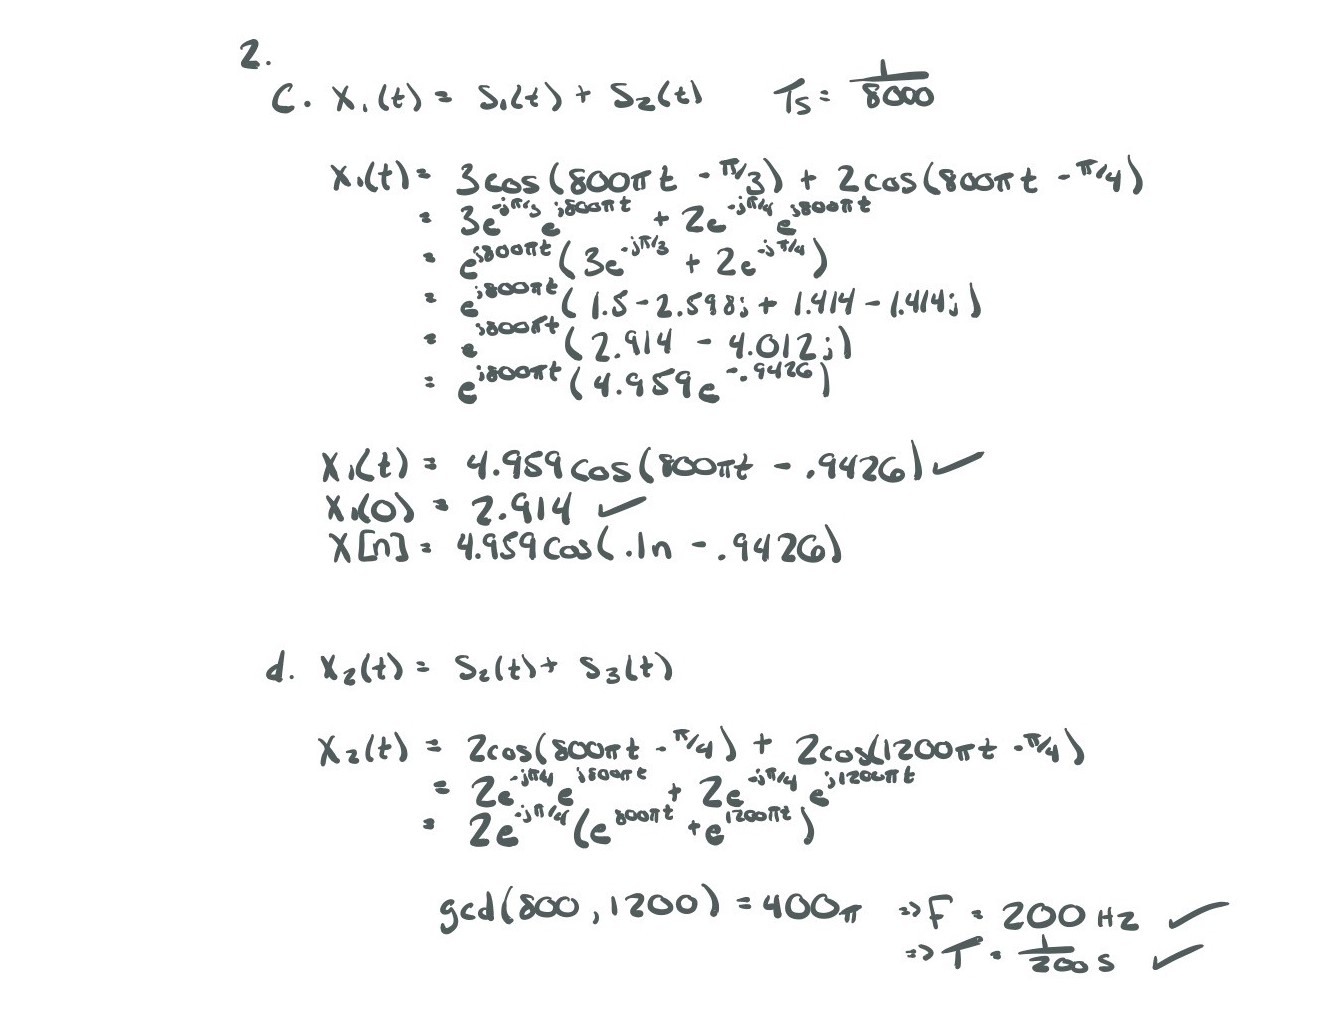 2.
c. x₁(t) = s₁(t) + s₂(t) Ts = 1/8000
x₁(t) = 3cos(800πt - π/3) + 2cos(800πt - π/4)
= 3e^-jπ/3 e^j800πt + 2e^-jπ/4 e^j800πt
= e^j800πt (3e^-jπ/3 + 2e^-jπ/4)
= e^j800πt (1.5 - 2.598j + 1.414 - 1.414j)
= e^j800πt (2.914 - 4.012j)
= e^j800πt (4.959e^-.9426)
x₁(t) = 4.959cos(800πt - .9426) ✓
x₁(0) = 2.914 ✓
x[n] = 4.959cos(.1n - .9426)
d. x₂(t) = s₂(t) + s₃(t)
x₂(t) = 2cos(800πt - π/4) + 2cos(1200πt - π/4)
= 2e^-jπ/4 e^j800πt + 2e^-jπ/4 e^j1200πt
= 2e^-jπ/4 (e^800πt + e^1200πt)
gcd(800, 1200) = 400π => F = 200 Hz ✓
=> T = 1/200 s ✓